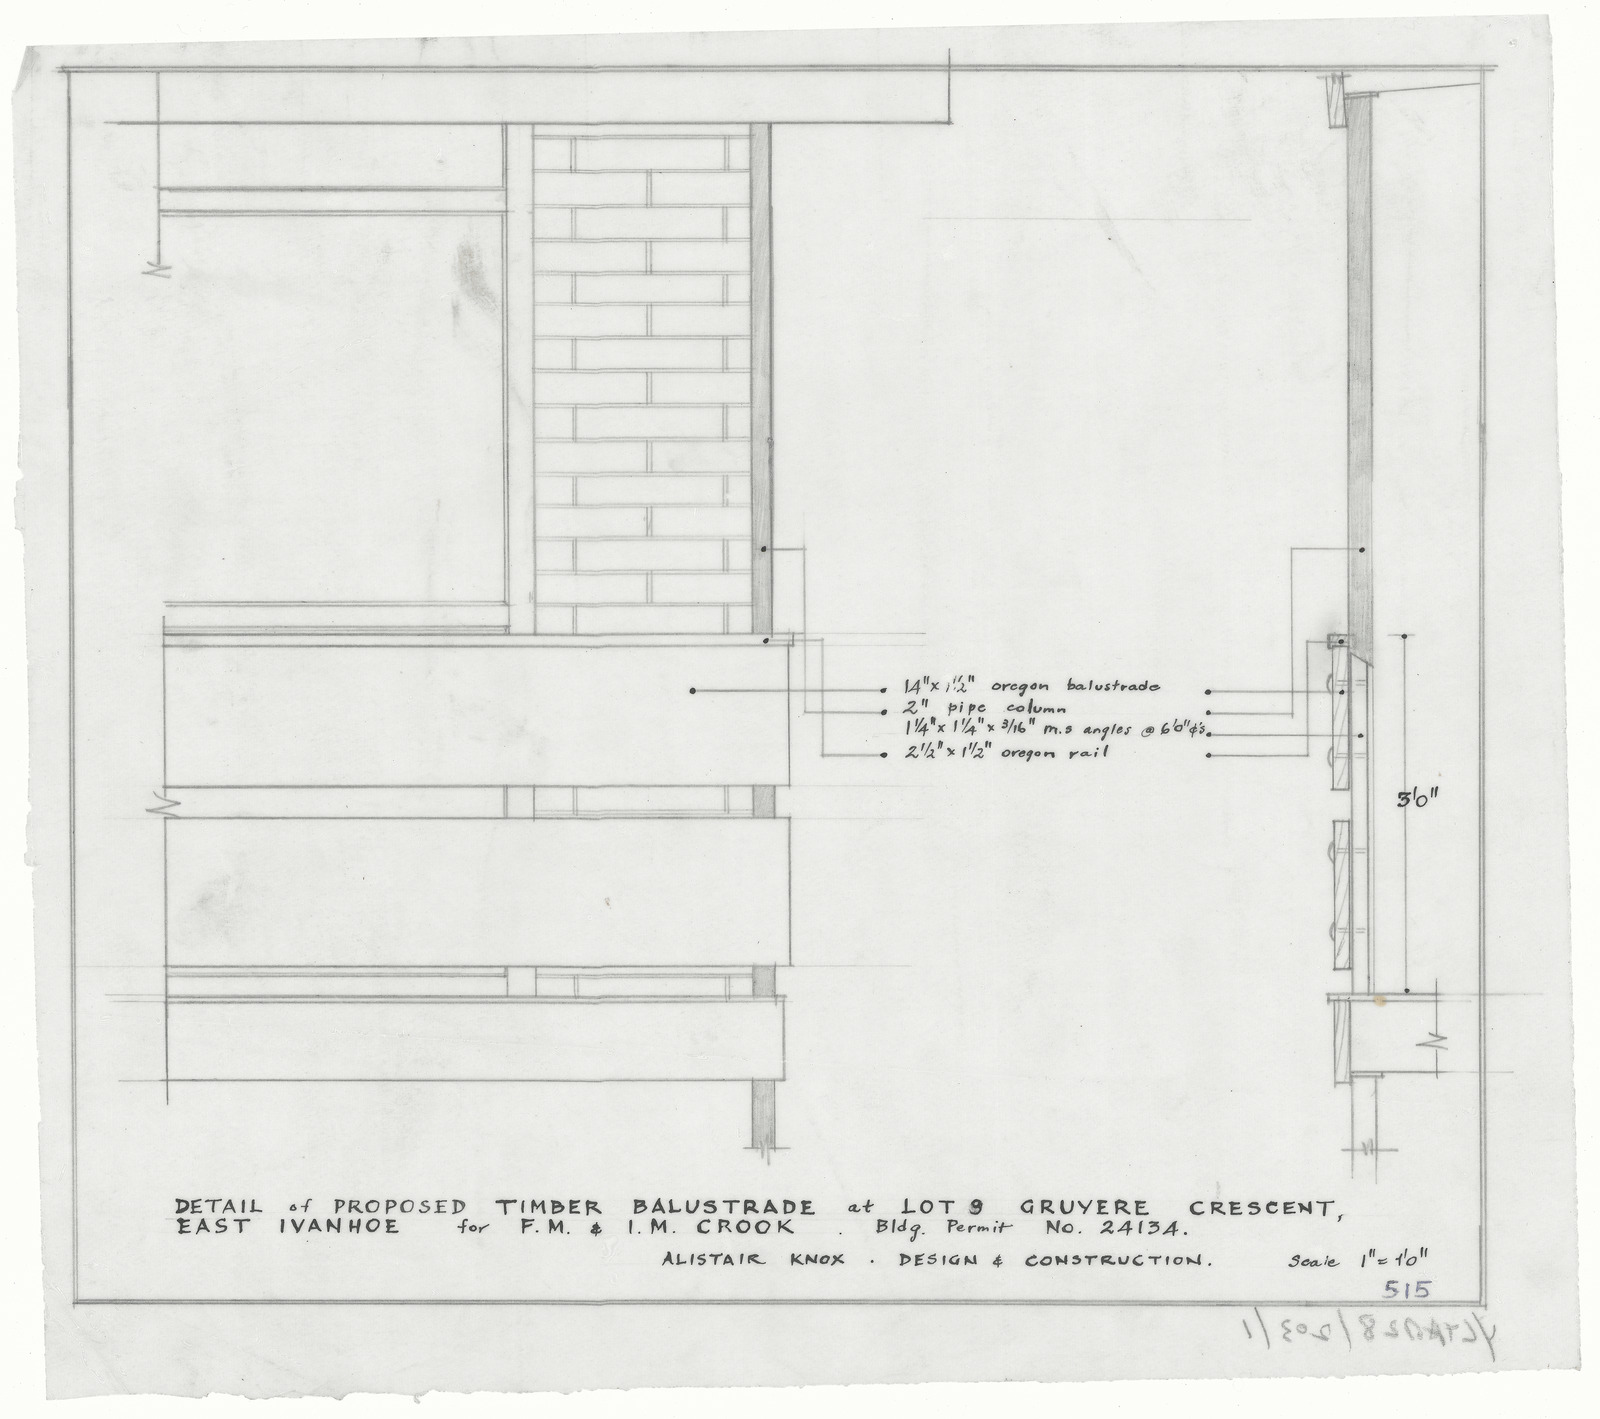 14"x 1½" oregon balustrade
2" pipe column
1¼"x 1¼"x 3/16" m.s angles @ 6'0"¢'s.
2½"x 1½" oregon rail
3'0"
DETAIL of PROPOSED TIMBER BALUSTRADE at LOT 9 GRUYERE CRESCENT,
EAST IVANHOE for F.M. & I.M. CROOK . Bldg. Permit No. 24134.
ALISTAIR KNOX . DESIGN & CONSTRUCTION. Scale 1"= 1'0"
515